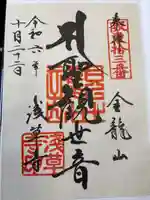 奉拝
坂東拾三番
金龍山
聖観世音
浅草寺
令和六年
十月二十二日